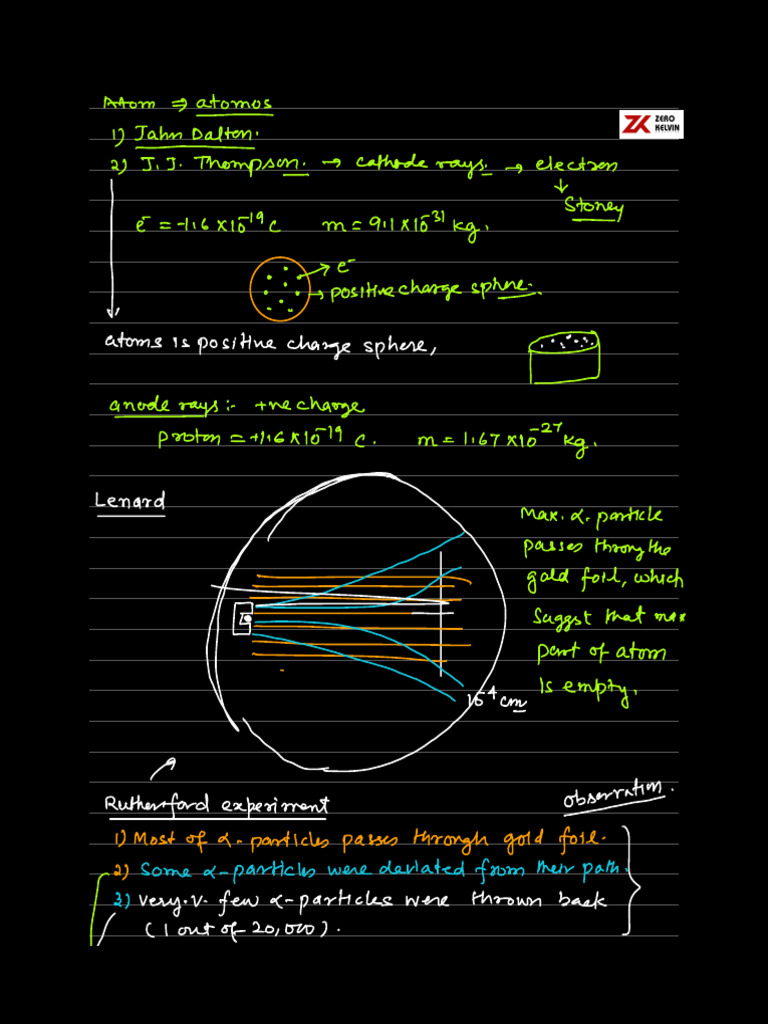 Atom ⇒ atomos
ZK ZERO KELVIN
1) Jahn Dalton.
2) J.J. Thompson. → cathode rays. → electron
↓
Stoney
e⁻ = -1.6 × 10⁻¹⁹ C m = 9.1 × 10⁻³¹ kg.
→ e⁻
→ positive charge sphere.
atoms is positive charge sphere,
anode rays :- +ve charge
proton = +1.6 × 10⁻¹⁹ C. m = 1.67 × 10⁻²⁷ kg.
Lenard
Max. α. particle
passes throng the
gold foil, which
suggst that max
part of atom
is empty.
10⁻⁴ cm
Rutherford experiment
obserration.
1) Most of α-particles passes through gold foil.
2) Some α-particles were deviated from their path.
3) very.v. few α-particles were thrown back
(1 out of 20,000).